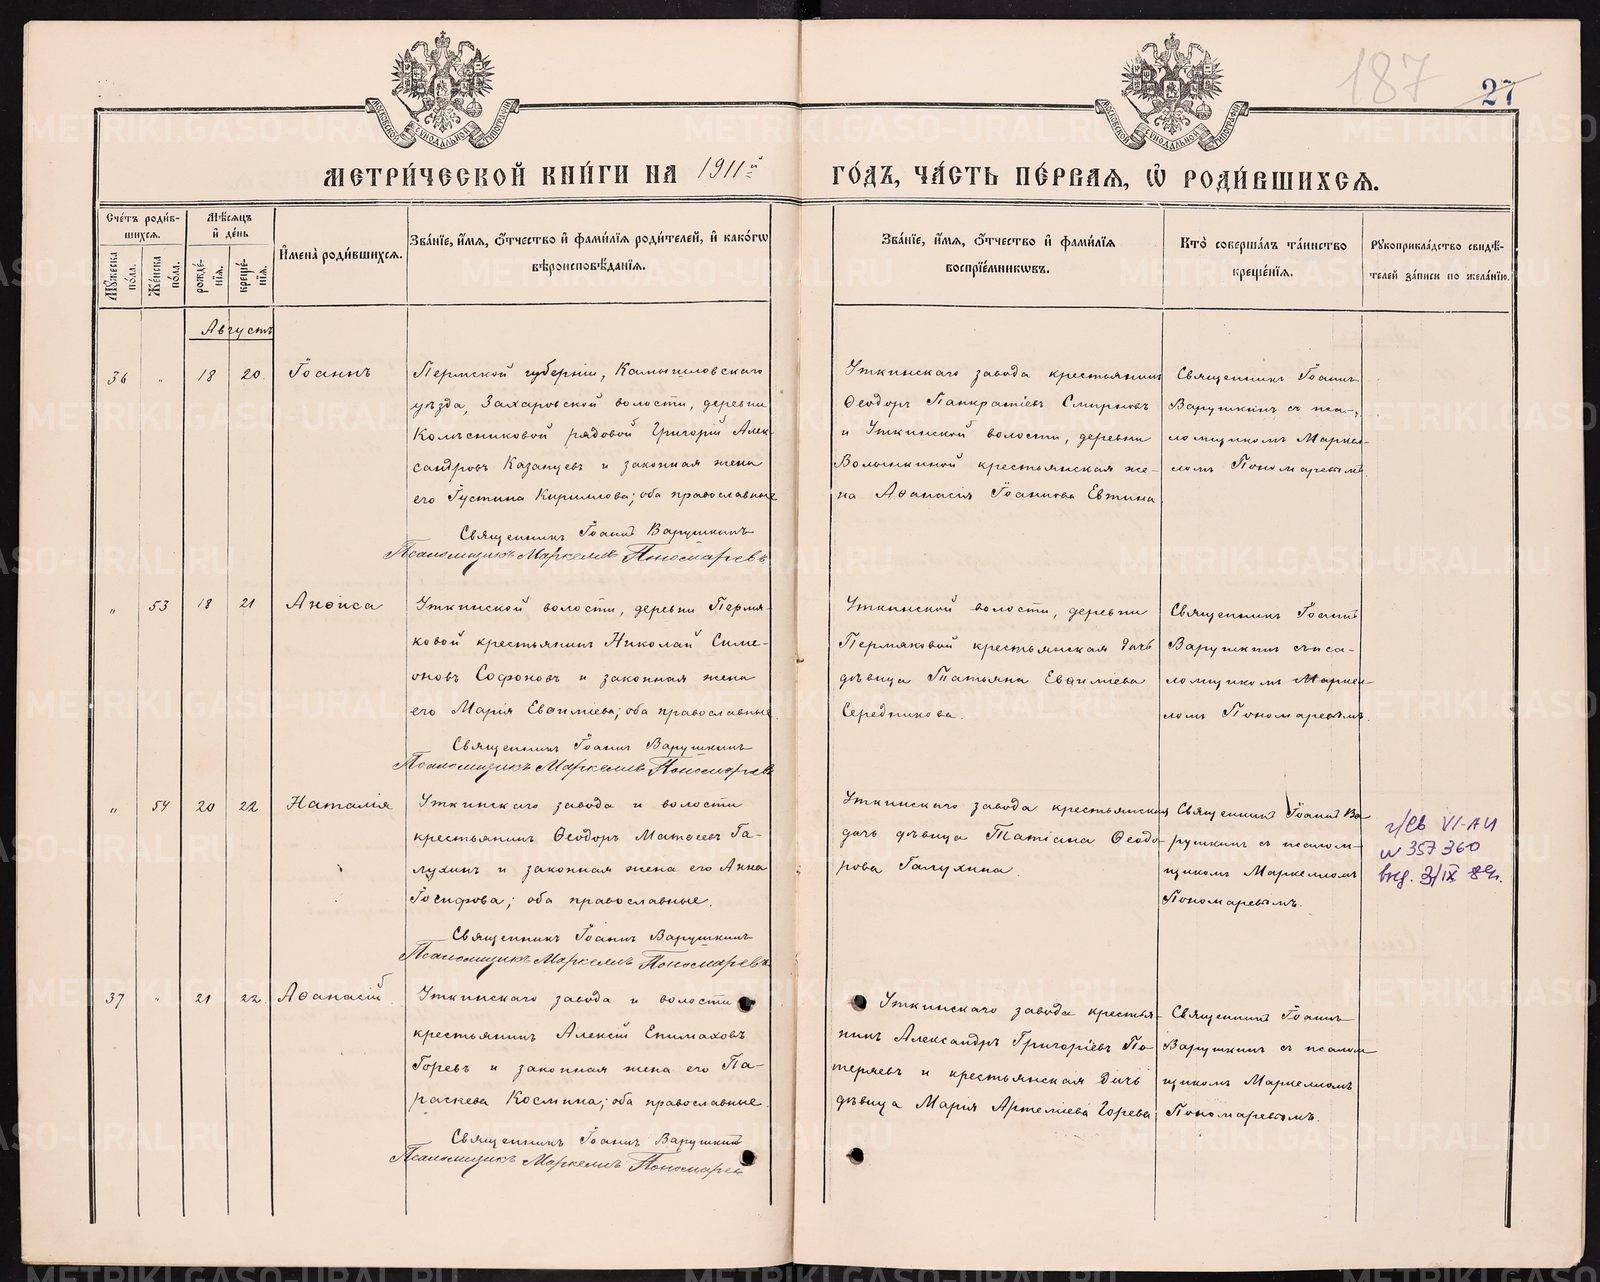 187
27
МОСКОВСКОЙ СѴНОДАЛЬНОЙ ТИПОГРАФІИ
МОСКОВСКОЙ СѴНОДАЛЬНОЙ ТИПОГРАФІИ
МЕТРИ́ЧЕСКОЙ КНИ́ГИ НА 1911й ГО́ДЪ, ЧА́СТЬ ПЕ́РВАѦ, Ѡ҆ РОДИ́ВШИХСѦ.
Сче́тъ роди́в-
шихсѧ.
Мꙋжеска по́ла.
Же́нска по́ла.
Мѣ́сѧцъ
и҆ де́нь
рожде́-
нїѧ.
креще́-
нїѧ.
И҆мена̀ роди́вшихсѧ.
Зва́нїе, и҆́мѧ, ѻ҆́тчество и҆ фами́лїѧ роди́телей, и҆ како́гѡ
вѣроисповѣ́данїѧ.
Зва́нїе, и҆́мѧ, ѻ҆́тчество и҆ фами́лїѧ
воспрїе́мникѡвъ.
Кто̀ соверша́лъ та́инство
креще́нїѧ.
Рꙋкоприкла́дство свидѣ́-
телей за́писи по жела́нїю.
Августъ
36 " 18 20 Іоаннъ
Пермской губерніи, Камышловскаго
уѣзда, Захаровской волости, деревни
Колѣсниковой рядовой Григорій Алек-
сандровъ Казанцевъ и законная жена
его Іустина Кириллова; оба православные
Священникъ Іоаннъ Варушкинъ
Псаломщикъ Маркеллъ Пономаревъ
Уткинскаго завода крестьянинъ
Ѳеодоръ Панкратіевъ Смирновъ
и Уткинской волости, деревни
Волынкиной крестьянская же-
на Аѳанасія Іоаннова Евтина
Священникъ Іоаннъ
Варушкинъ съ пса-
ломщикомъ Маркел-
ломъ Пономаревымъ
" 53 18 21 Анѳиса
Уткинской волости, деревни Пермя-
ковой крестьянинъ Николай Симе-
оновъ Софоновъ и законная жена
его Марія Евѳиміева; оба православные.
Священникъ Іоаннъ Варушкинъ
Псаломщикъ Маркеллъ Пономаревъ
Уткинской волости, деревни
Пермяковой крестьянская дочь
дѣвица Татьяна Евѳиміева
Середникова.
Священникъ Іоаннъ
Варушкинъ съ пса-
ломщикомъ Маркел-
ломъ Пономаревымъ.
" 54 20 22 Наталія
Уткинскаго завода и волости
крестьянинъ Ѳеодоръ Матѳеевъ Га-
лухинъ и законная жена его Анна
Іосифова; оба православные.
Священникъ Іоаннъ Варушкинъ
Псаломщикъ Маркеллъ Пономаревъ
Уткинскаго завода крестьянская
дочь дѣвица Татіана Ѳеодо-
рова Галухина.
Священникъ Іоаннъ Ва-
рушкинъ съ псалом-
щикомъ Маркелломъ
Пономаревымъ.
г/св VI-АИ
№ 357360
выд. 3/IX 84г.
37 " 21 22 Аѳанасій
Уткинскаго завода и волости
крестьянинъ Алексій Епимаховъ
Горевъ и законная жена его Па-
раскева Космина; оба православные.
Священникъ Іоаннъ Варушкинъ
Псаломщикъ Маркеллъ Пономаревъ
Уткинскаго завода крестья-
нинъ Александръ Григоріевъ По-
теряевъ и крестьянская дочь
дѣвица Марія Артеміева Горева
Священникъ Іоаннъ
Варушкинъ съ псалом-
щикомъ Маркелломъ
Пономаревымъ.
METRIKI.GASO-URAL.RU